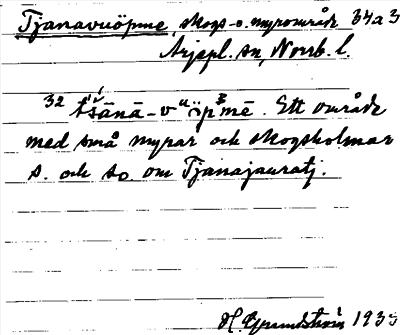 Tjanavuöpme, skogs- o. myrområde 34a3
Arjepl. sn, Norrb. l.
32 tšānā-vuöpmē. Ett område
med små myrar och skogsholmar
s. och so om Tjanajauratj.
H. Grundström 1935